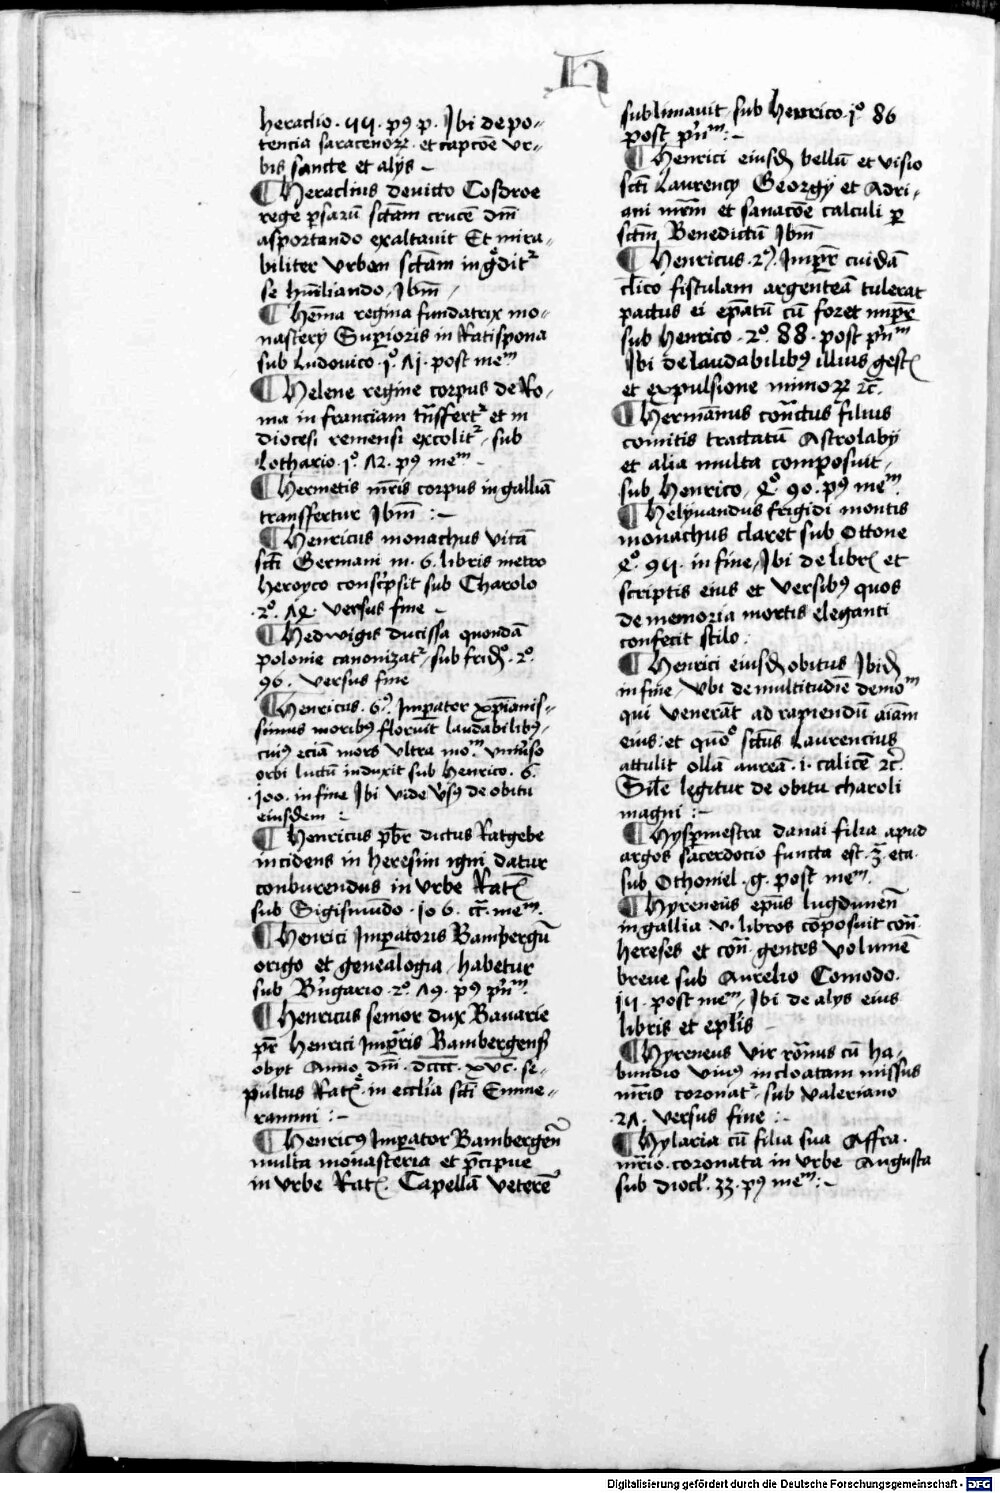 H
heraclio. 55. pꝰ p. Ibi de po-
tencia saracenoꝝ. et capcōe vr-
bis sancte et alijs -
¶ Heraclius deuicto Cosdroe
rege psarū sctām crucē dnī
asportando exaltauit Et mira-
biliter vrbem sctām ingdit
se humiliando, Ibm̄
¶ Hēma regina fundatrix mo-
nasterij Supioris in Ratispona
sub Ludouico. jº. 71. post mem
¶ Helene regine corpus de Ro-
ma in franciam trāsfert et in
diocesi remensi excolit, sub
Lothario. jº. 72. pꝰ mem -
¶ Hermetis mris corpus in galliā
transffertur Ibm̄ :-
¶ Henricus monachus vitā
scti Germani in. 6. libris metro
heroyco conscpsit sub Charolo
.2º. 74. versus fine -
¶ Hedwigis ducissa quondā
polonie canonizat, sub frid. 2º.
96. versus fine
¶ Henricus. 6ꝰ. Imperator xpianis-
simus moribꝰ floruit laudabilibꝰ,
cuiꝰ eciā mors vltra mom vniuso
orbi luctū induxit sub henrico. 6.
.100. in fine Ibi vide vsꝰ de obitu
eiusdem :
¶ Henricus pbr dictus Ratgebe
incidens in heresim igni datur
conburendus in vrbe Rat
sub Sigismūdo. 106. ct. mem.
¶ Henrici Imperatoris Bambergn
origo et genealogia, habetur
sub Bngario. 2º. 79. pꝰ pnm.
¶ Henricus senior dux Bauarie
pr Henrici Impris Bambergens
obyt Anno dni. dcccc. xvc. se-
pultus Rat. in ecclia scti Emme-
rammi :-
¶ Henricꝰ Imperator Bambergen
multa monasteria et pcipue
in vrbe Rat. Capellā veterē
sublimauit sub Henrico. jº 86
post pnm :-
¶ Henrici eiusd bellū et visio
scti Laurencij Georgij et Adri-
ani mrm et sanacōe calculi p
sctm Benedictū Ibm̄
¶ Henricus. 2ꝰ. Impr cuidā
clico fistulam argenteā tulerat
pactus ei epatū cū foret impr
sub Henrico. 2º. 88. post pnm
Ibi de laudabilibꝰ illius gest
et expulsione mimoꝝ ꝛc.
¶ Hermānus contctus filius
comitis tractatū Astrolabij
et alia multa composuit,
sub Henrico, 4º. 90. pꝰ mem.
¶ Helynandus frigidi montis
monachus claret sub Ottone
4º. 95. in fine, Ibi de libr et
scriptis eius et versibꝰ quos
de memoria mortis eleganti
confecit stilo.
¶ Henrici eiusd obitus Ibid
in fine, vbi de multitudīe demom
qui venerāt ad rapiendū aīam
eius: et quō sctus Laurencius
attulit ollā aureā. i. calicē ꝛc.
Sile legitur de obitu charoli
magni :-
¶ Hyspmestra danai filia apud
argos sacerdocio functa est. 3. eta.
sub Othoniel. 9. post mem.
¶ Hyreneus epus lugdunen
in gallia. v. libros cōposuit con
hereses et con gentes volumē
breue sub Aurelio Comodo.
15. post mem, Ibi de alys eius
libris et eplis
¶ Hyreneus vir romnus cū ha-
bundio viuꝰ in cloatam missus
mris coronat, sub valeriano
.27. versus fine :-
¶ Hylaria cū filia sua Affra.
mrio. coronata in vrbe Augusta
sub diocl. 33. pꝰ mem :-
Digitalisierung gefördert durch die Deutsche Forschungsgemeinschaft - DFG